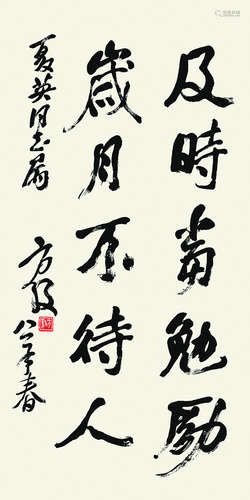 及時當勉勵
歲月不待人
夏英同志屬
方毅
年春